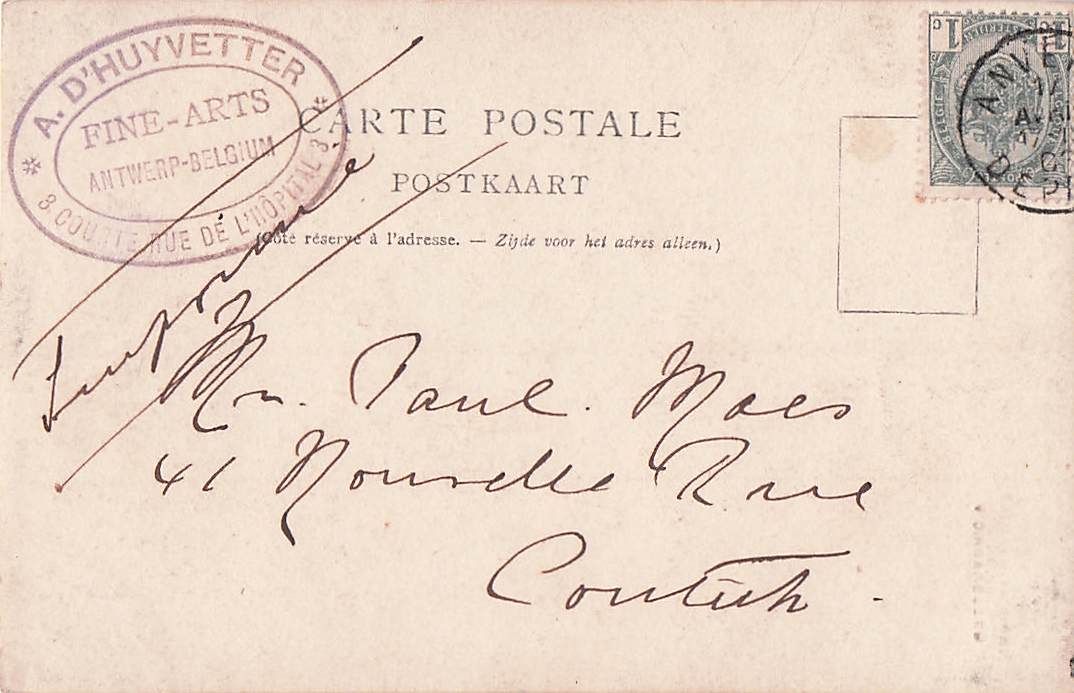 A. D'HUYVETTER
FINE-ARTS
ANTWERP-BELGIUM
3. COURTE RUE DE L'HÔPITAL 3
CARTE POSTALE
POSTKAART
(Côté réservé à l'adresse. — Zijde voor het adres alleen.)
1c 1c
ANVE
DEP
Imprimé
Mr. Paul. Maes
41 Nouvelle Rue
Contich.